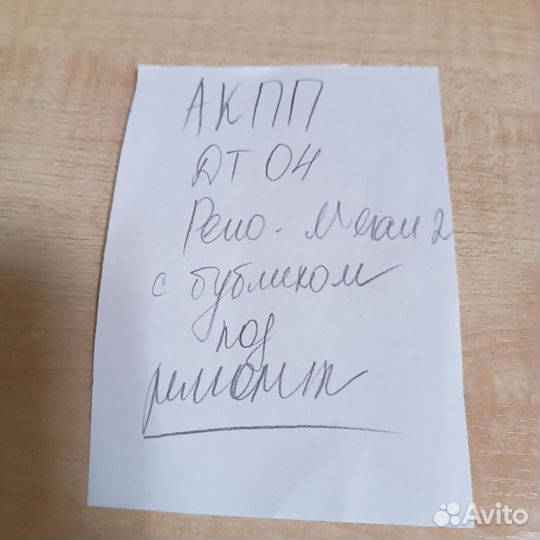 АКПП
ДТ04
Рено-Меган 2
с бубликом
под
ремонт
Avito